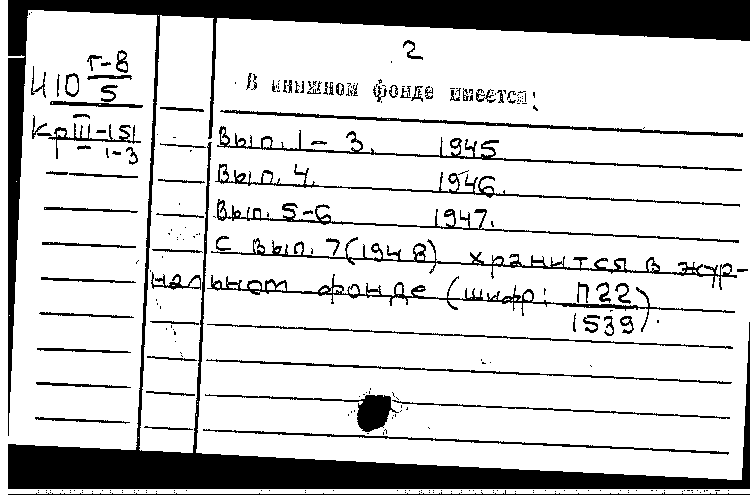 2
И10 Г-8/5
В книжном фонде имеется:
Кр III-151
1-3
Вып. 1-3. 1945
Вып. 4. 1946.
Вып. 5-6 1947.
С вып. 7 (1948) хранится в жур-
нальном фонде (шифр: П22/1539).